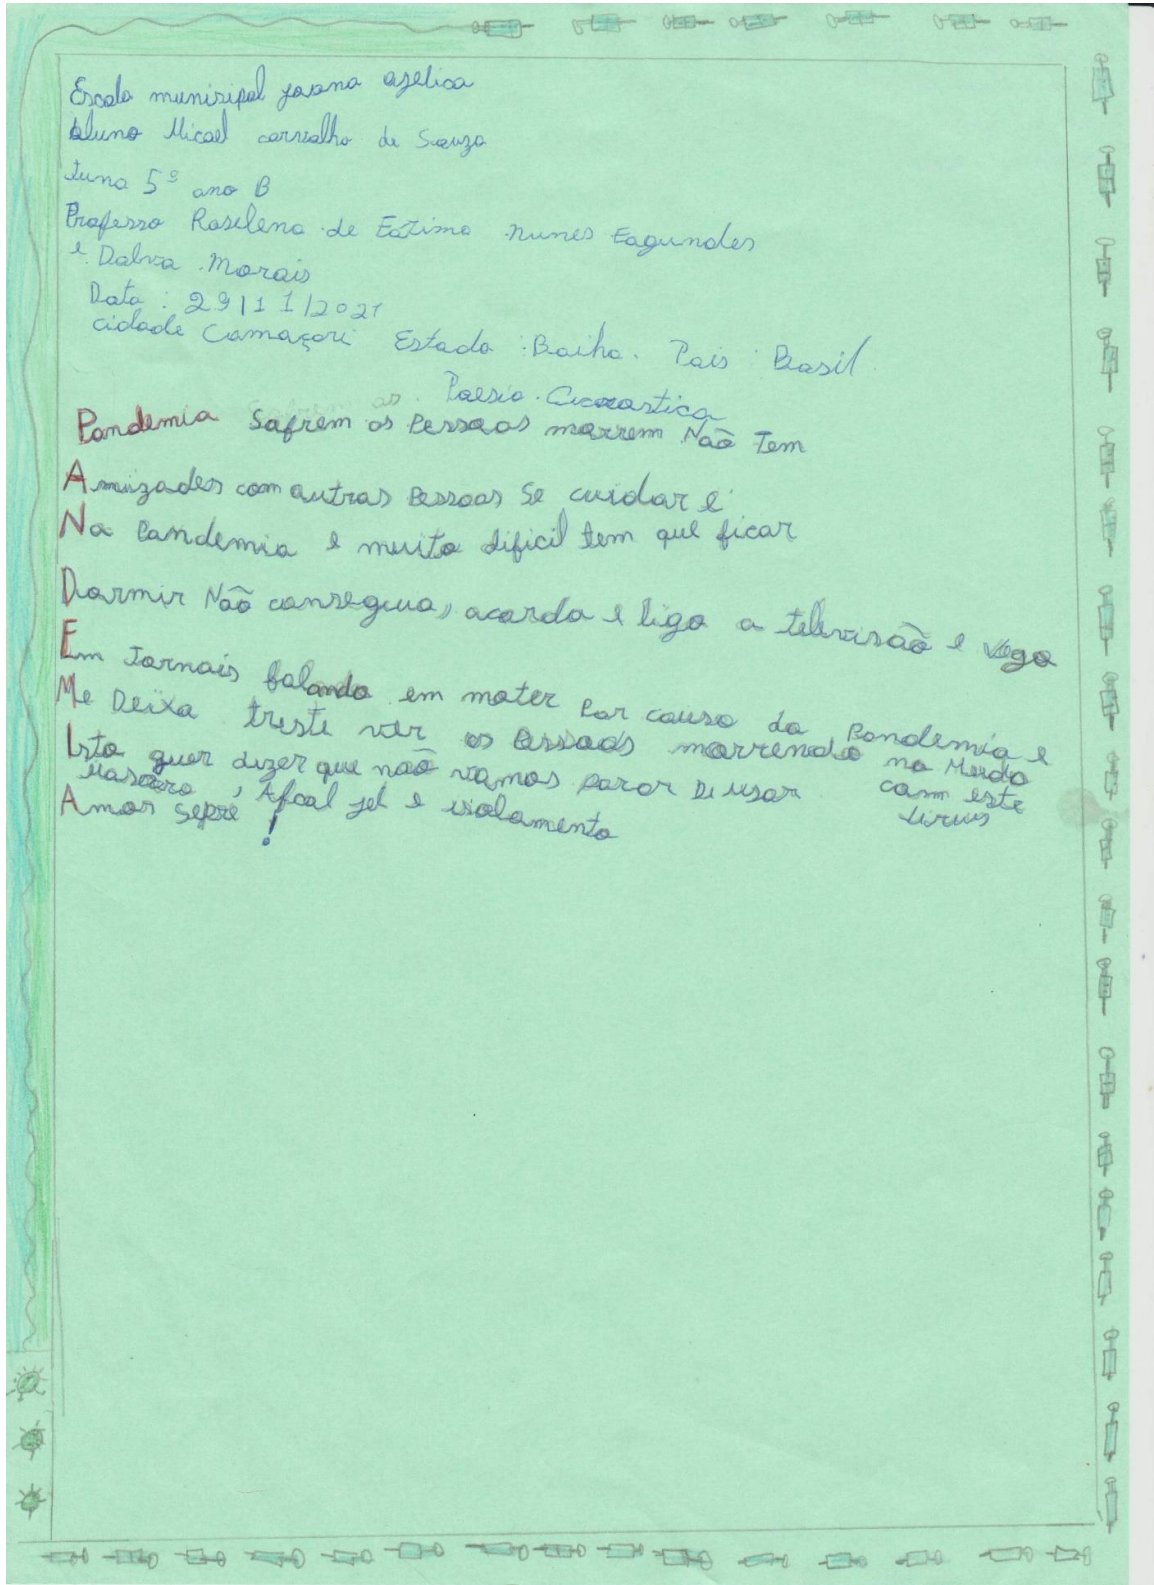 Escola munisipal joana agelica
aluno Micael carvalho de Souza
turna 5º ano B
Professo Roselena de Fatima nunes Fagundes
e Dalva Morais
Data : 29/11/2021
cidade Camaçari Estado : Baiha. Pais : Brasil
Poesia Acrostica
Pandemia Sofrem as Pessoas morrem Não Tem
Amizades com outras Pessoas Se cuidar e
Na Pandemia e muito dificil tem que ficar
Dormir Não consegiuo, acordo e ligo a televisão e vego
Em Jornais falando em mater Por causo da Pandemia e
Me Deixa treste ver as Pessoas morrendo no Mundo
Isto quer dizer que não vamos parar De usar com este
Mascaro , Afcoal jel e isolamento virus
Amor sepre !